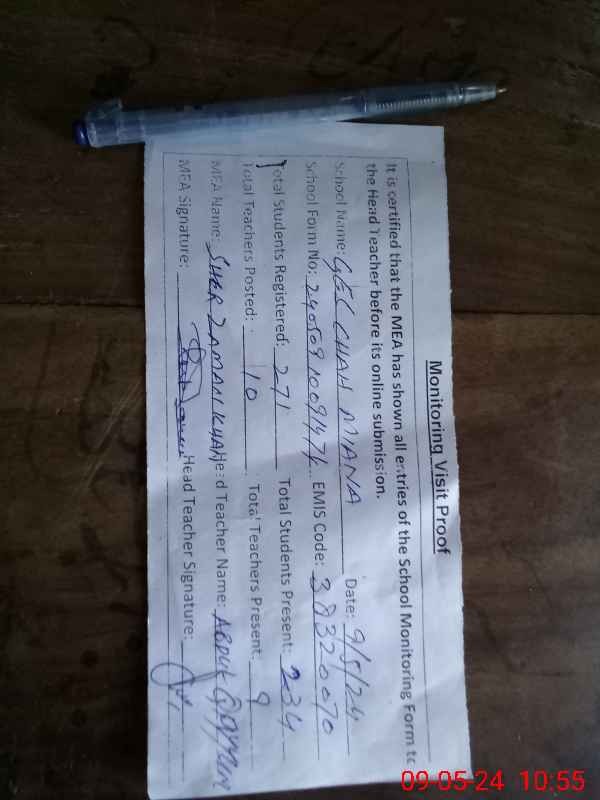 Monitoring Visit Proof
It is certified that the MEA has shown all entries of the School Monitoring Form to
the Head Teacher before its online submission.
School Name: GES CHAH MIANA Date: 9/5/24
School Form No: EMIS Code: 38320070
Total Students Registered: 271 Total Students Present: 234
Total Teachers Posted: 10 Total Teachers Present: 9
MEA Name: SHER ZAMAN KHAN Head Teacher Name: ABDUL
MEA Signature: Head Teacher Signature:
09-05-24 10:55